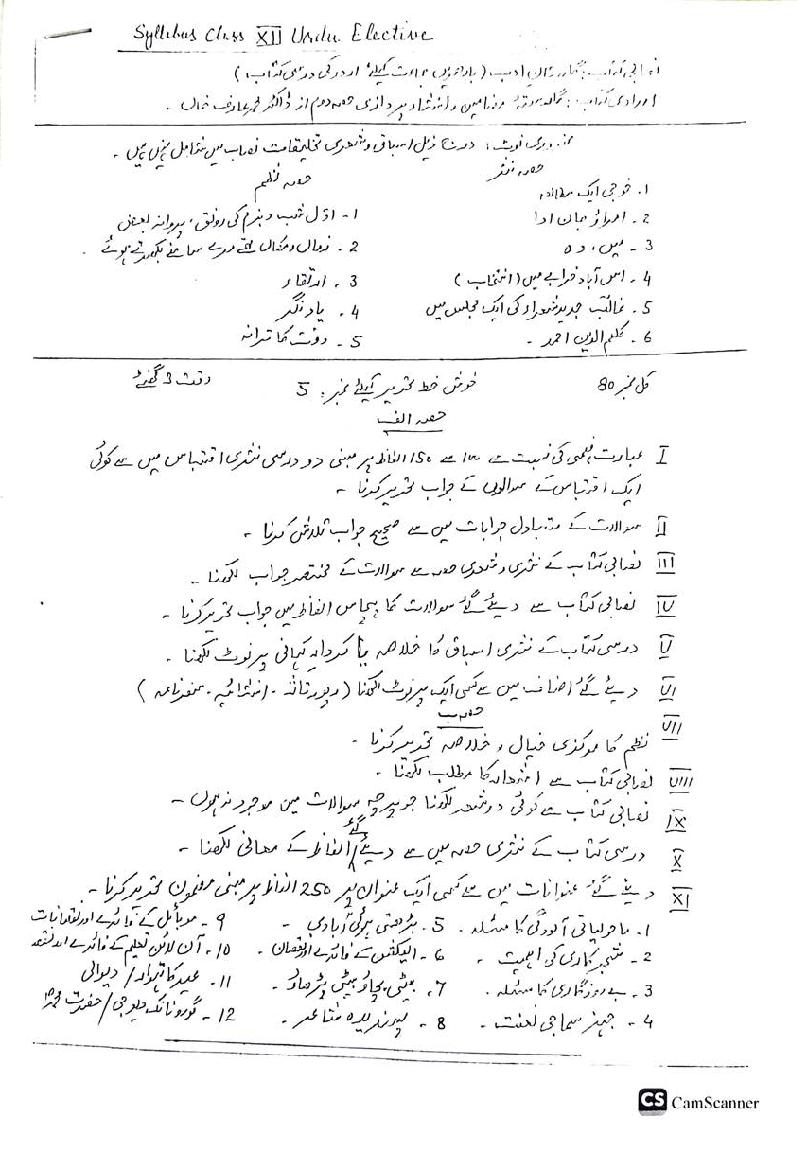 Syllabus Class XII Urdu Elective
نصابی کتاب: گلدستان ادب (بارہویں جماعت کیلئے اردو کی درسی کتاب)
امدادی کتاب: گلدستہ مضامین و انشاء پردازی حصہ دوم از ڈاکٹر محمد عارف خاں۔
ضروری نوٹ: درج ذیل اسباق و شعری تخلیقات نصاب میں شامل نہیں ہیں۔
حصہ نثر
1. خوجی ایک مطالعہ
2- امراؤ جان ادا
3- میں، وہ
4- اس آباد خرابے میں (انتخاب)
5. غالب جدید شعراء کی ایک مجلس میں
6- کلیم الدین احمد۔
حصہ نظم
1- اوّل شب و بزم کی رونق، پروانہ
2. زمان و مکاں تھے مرے سامنے بکھرتے ہوئے۔
3. ارتقاء
4. یاد نگر
5. وقت کا ترانہ
کل نمبر 80 خوش خط تحریر کیلئے نمبر: 5 وقت 3 گھنٹے
حصہ الف
I عبارت فہمی کی نسبت سے 100 سے 150 الفاظ پر مبنی دو درسی نثری اقتباس میں سے کوئی
ایک اقتباس کے سوالوں کے جواب تحریر کرنا۔
II سوالات کے متبادل جوابات میں سے صحیح جواب تلاش کرنا۔
III نصابی کتاب کے نثری و شعری حصہ سے سوالات کے مختصر جواب لکھنا۔
IV نصابی کتاب سے دیئے گئے سوالات کا پچاس الفاظ میں جواب تحریر کرنا۔
V درسی کتاب کے نثری اسباق کا خلاصہ یا کردار کہانی پر نوٹ لکھنا۔
VI دیئے گئے اصناف میں سے کسی ایک پر نوٹ لکھنا (رپورتاژ۔ انشائیہ۔ سفرنامہ)
حصہ ب
VII نظم کا مرکزی خیال و خلاصہ تحریر کرنا۔
VIII نصابی کتاب سے اشعار کا مطلب لکھنا۔
IX نصابی کتاب سے کوئی دو شعر لکھنا جو پرچہ سوالات میں موجود نہ ہوں۔
X درسی کتاب کے نثری حصہ میں سے دیئے گئے الفاظ کے معانی لکھنا۔
XI دیئے گئے عنوانات میں سے کسی ایک عنوان پر 250 الفاظ پر مبنی مضمون تحریر کرنا۔
1. ماحولیاتی آلودگی کا مسئلہ۔ 5. بڑھتی ہوئی آبادی۔ 9- موبائل کے فائدے اور نقصانات
2- شجر کاری کی اہمیت۔ 6- الیکشن کے فائدے اور نقصان۔ 10- آن لائن تعلیم کے فائدے اور نقصان
3- بے روزگاری کا مسئلہ۔ 7. بیٹی بچاؤ بیٹی پڑھاؤ۔ 11. عید کا تہوار / دیوالی
4- جہیز سماجی لعنت۔ 8- پسندیدہ شاعر۔ 12- گورو نانک دیو جی / حضرت محمد
CS CamScanner